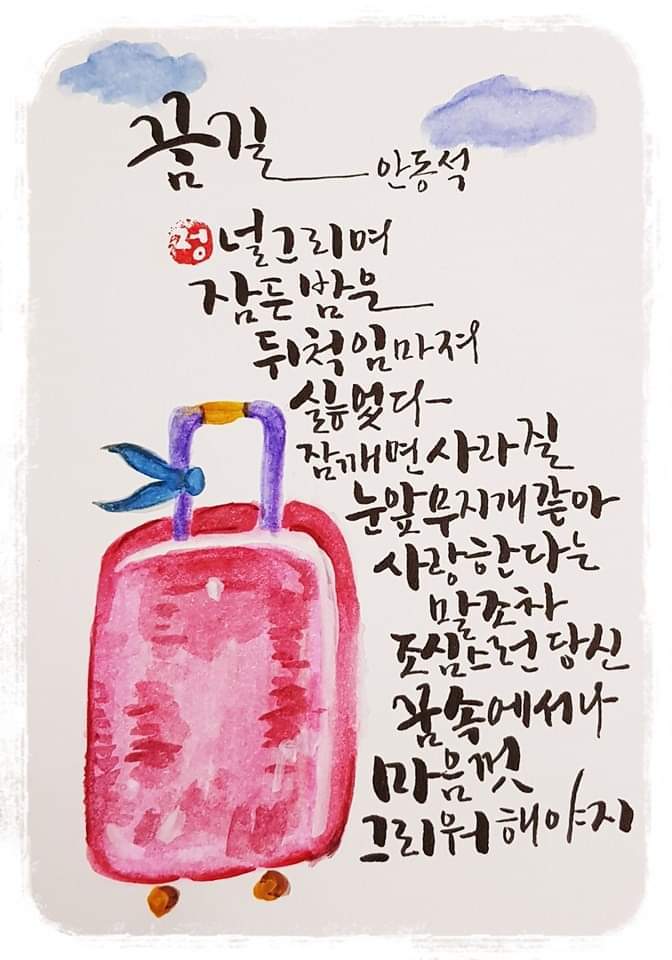 꿈길 안동석
정 널 그리며
잠든 밤은
뒤척임마져
싫었다
잠깨면 사라질
눈앞 무지개 같아
사랑한다는
말조차
조심스런 당신
꿈속에서나
마음껏
그리워 해야지